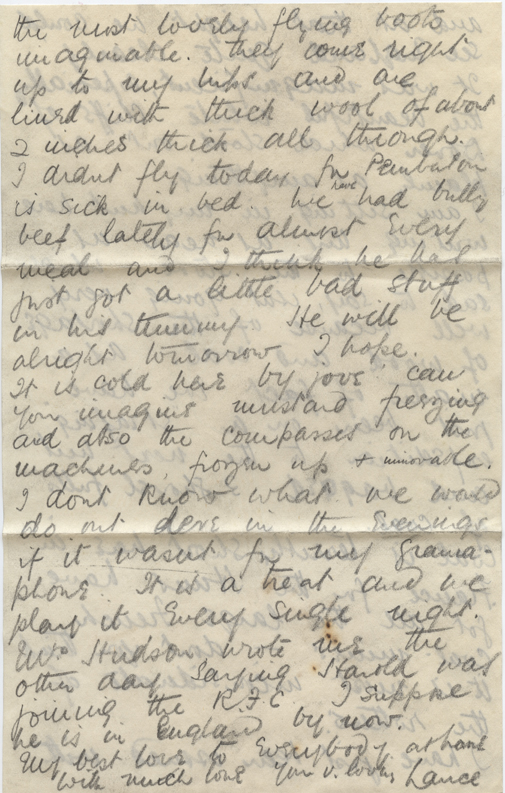 the most lovely flying boots
imaginable. they come right
up to my hips and are
lined with thick wool of about
2 inches thick all through.
I didnt fly today for Pemberton
is sick in bed. We have had bully
beef lately for almost Every
meal and I think he has
just got a little bad stuff
in his tummy He will be
alright tomorrow I hope.
It is cold here by jove can
you imagine mustard freezing
and also the compasses on the
machines, frozen up + unmovable.
I dont know what we would
do out here in the Evenings
if it wasnt for my grama-
phone. It is a treat and we
play it Every single night.
Mrs Hudson wrote me the
other day saying Harold was
joining the R.F.C. I suppose
he is in England by now.
My best love to Everybody at home
With much love Your v. loving Lance